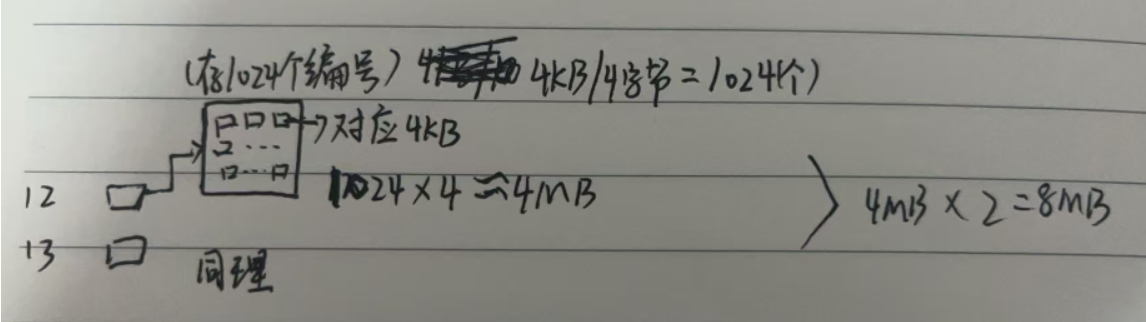 (存1024个编号) 4KB/4字节=1024个)
→对应4KB
12 1024×4≈4MB 4MB×2=8MB
13 同理